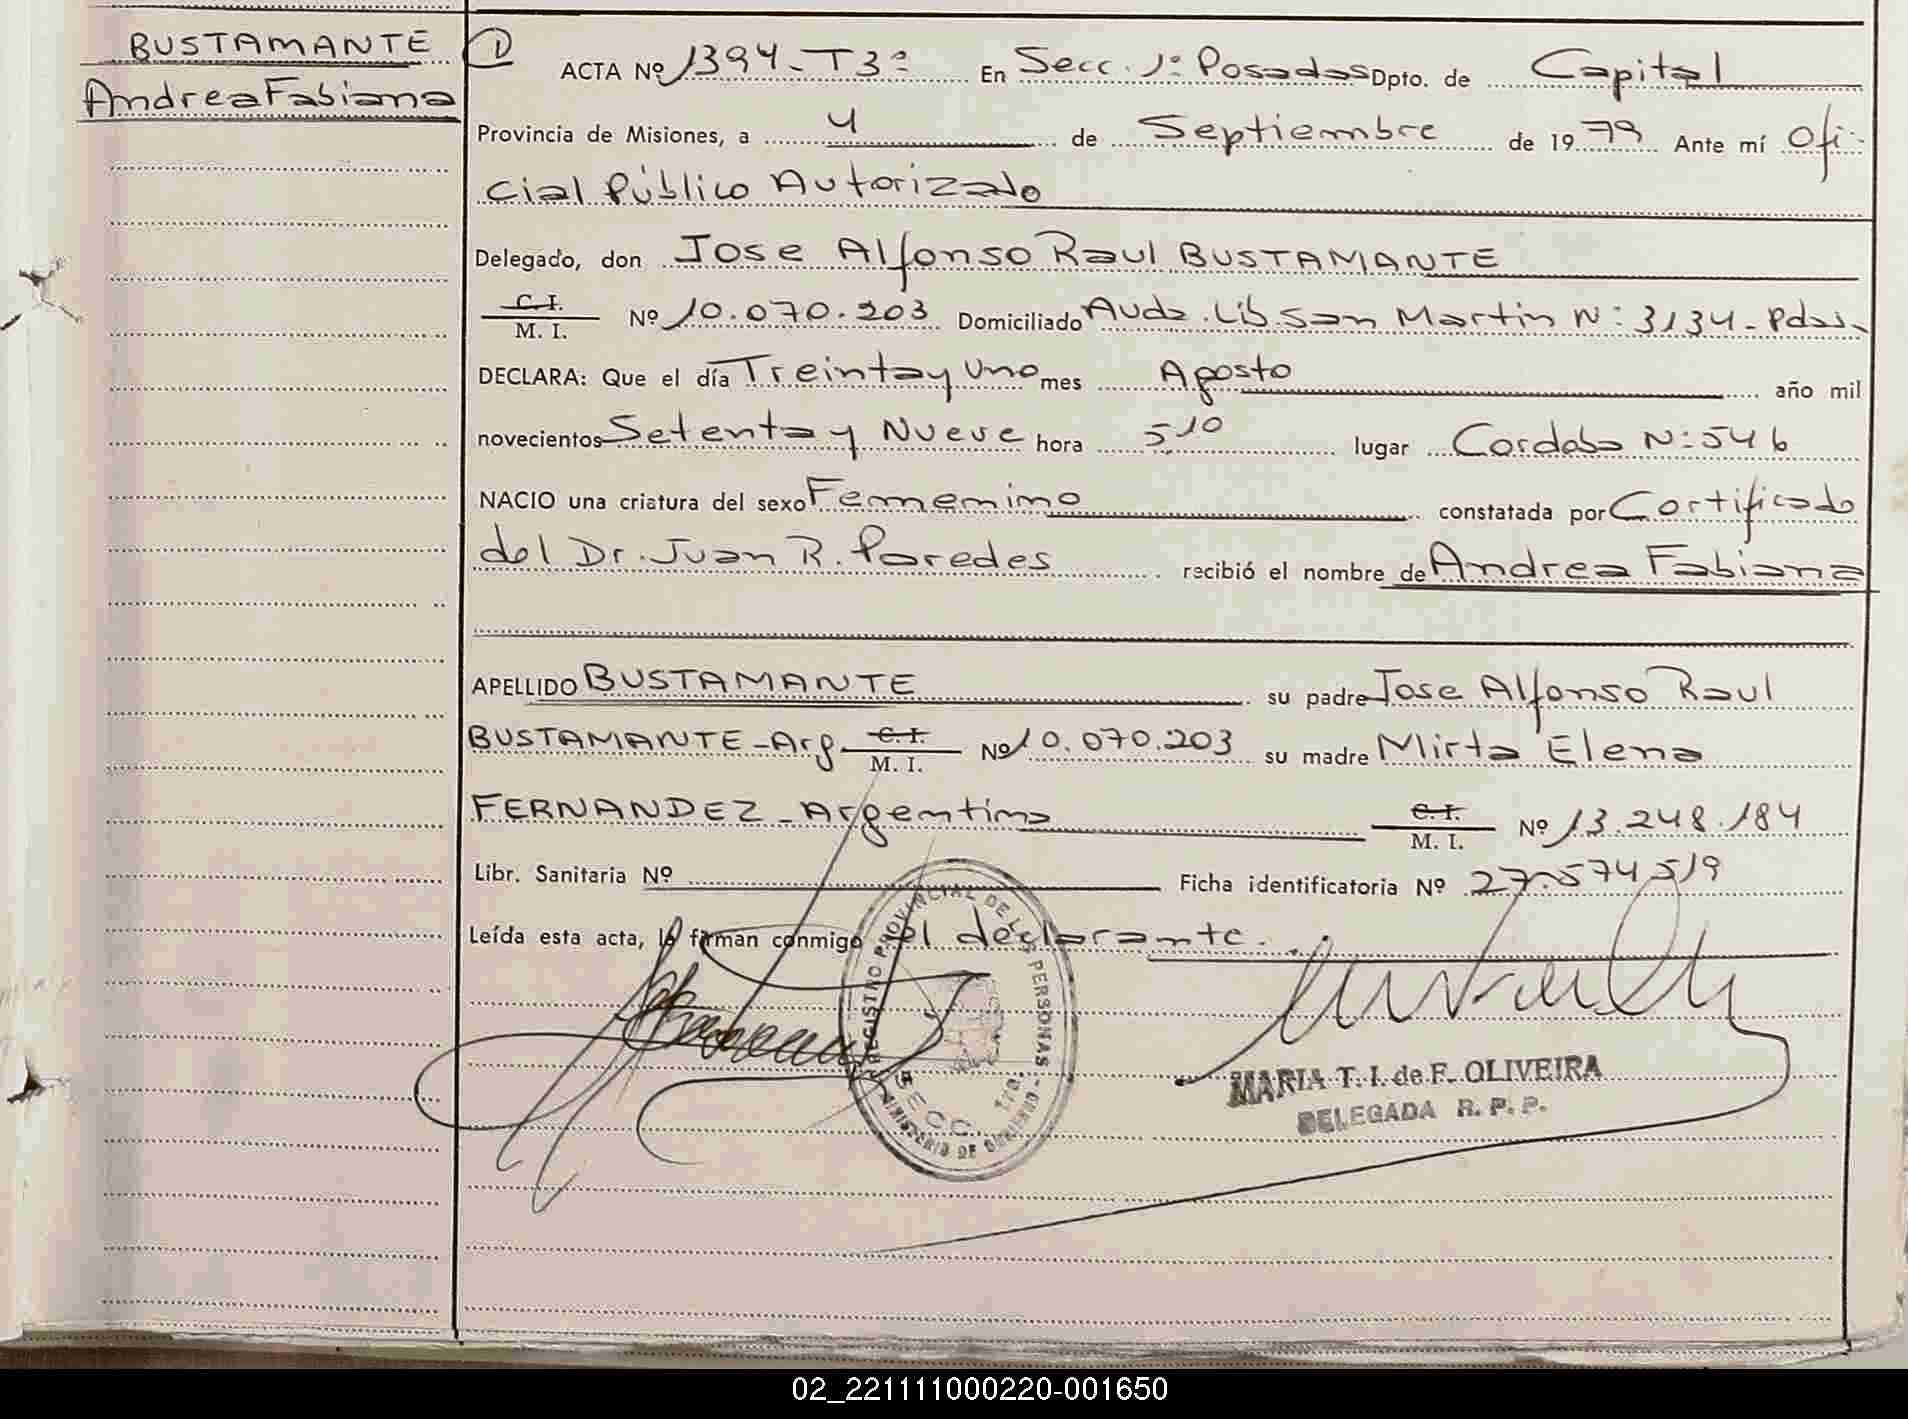 BUSTAMANTE
Andrea Fabiana
1
ACTA Nº 1394-T3º En Secc. 1º Posadas Dpto. de Capital
Provincia de Misiones, a 4 de Septiembre de 1979 Ante mí Ofi-
cial Público Autorizado
Delegado, don Jose Alfonso Raul BUSTAMANTE
C. I.
M. I. Nº 10.070.203 Domiciliado Avda. Lib. San Martin N: 3134- Pdas-
DECLARA: Que el día Treinta y Uno mes Agosto año mil
novecientos Setenta y Nueve hora 5 10 lugar Cordoba N: 546
NACIO una criatura del sexo Femenino constatada por Certificado
del Dr. Juan R. Paredes recibió el nombre de Andrea Fabiana
APELLIDO BUSTAMANTE su padre Jose Alfonso Raul
BUSTAMANTE-Arg. C. I. M. I. Nº 10.070.203 su madre Mirta Elena
FERNANDEZ-Argentina C. I. M. I. Nº 13.248.184
Libr. Sanitaria Nº Ficha identificatoria Nº 27.574519
Leída esta acta, la firman conmigo el declarante.
REGISTRO PROVINCIAL DE LAS PERSONAS - MINISTERIO DE GOBIERNO
SECC. 1ra.
MARIA T. I. de F. OLIVEIRA
DELEGADA R. P. P.
02_221111000220-001650